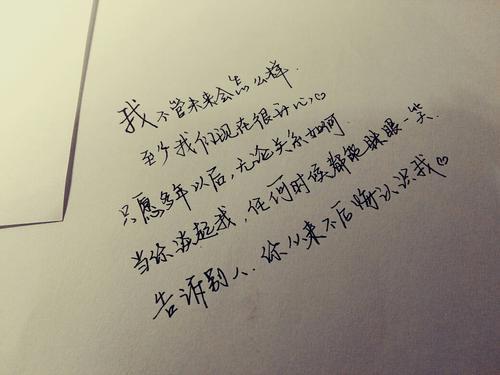 我不管未来会怎么样.
至少我们现在很开心,♡
只愿多年以后,无论关系如何.
当你谈起我,任何时候都能眯眼一笑.
告诉别人.你从来不后悔认识我♡